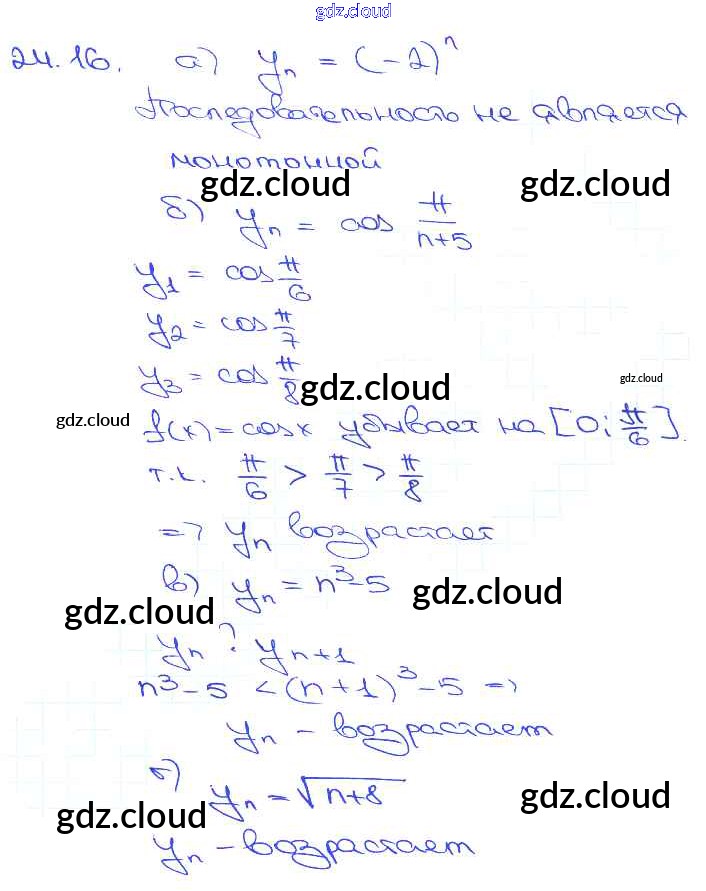 gdz.cloud
24.16. а) yₙ = (-2)ⁿ
Последовательность не является
монотонной
gdz.cloud gdz.cloud
б) yₙ = cos π/(n+5)
y₁ = cos π/6
y₂ = cos π/7
y₃ = cos π/8
gdz.cloud gdz.cloud
gdz.cloud
f(x) = cosx убывает на [0; π/6].
т.к. π/6 > π/7 > π/8
=> yₙ возрастает
в) yₙ = n³-5
gdz.cloud gdz.cloud
yₙ ? yₙ₊₁
n³-5 < (n+1)³-5 =>
yₙ - возрастает
г) yₙ = √(n+8)
gdz.cloud gdz.cloud
yₙ - возрастает